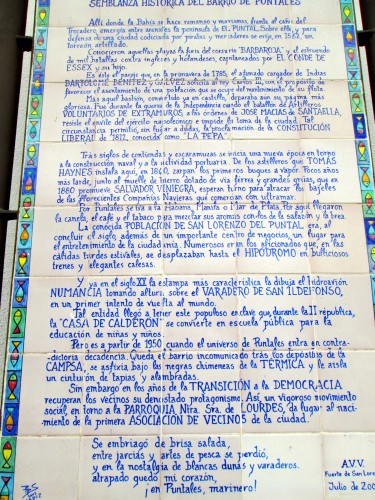 SEMBLANZA HISTORICA DEL BARRIO DE PUNTALES
Allí donde la Bahía se hace remanso y marismas, frente al caño del
Trocadero, emergía entre arenales la península de EL PUNTAL. Sobre ella, y para
defensa de una ciudad codiciada por piratas y mercaderes se erige, en 1562, un
torreón artillado.
Conocieron aquellas playas la furia del corsario "BARBARROJA" y el estruendo
de mil batallas contra ingleses y holandeses, capitaneados por EL CONDE DE
ESSEX y su hijo.
Es éste el paraje que, en la primavera de 1785, el afamado cargador de Indias
BARTOLOME BENITEZ y GALVEZ solicita al rey Carlos III, con el propósito de
favorecer el asentamiento de una población que se ocupe del mantenimiento de su flota.
Mas aquel bastión, convertido ya en castillo, deparaba aún su página más
gloriosa. Fue durante la guerra de la Independencia cuando el batallón de Artilleros
VOLUNTARIOS DE EXTRAMUROS a las órdenes de JOSE MACIAS de SANTAELLA,
resiste el envite del ejército napoleónico e impide la toma de la ciudad. Tal
circunstancia permitió, sin lugar a dudas, la proclamación de la CONSTITUCIÓN
LIBERAL de 1812, conocida como "LA PEPA".
Tras siglos de contiendas y escaramuzas se inicia una nueva época en torno
a la construcción naval y a la actividad portuaria. De los astilleros que TOMAS
HAYNES instala aquí, en 1840, zarpan los primeros buques a vapor. Pocos años
más tarde, junto al muelle de hierro dotado de vía férrea y grandes grúas, que en
1880 promueve SALVADOR VINIEGRA, esperan turno para atracar los bajeles
de las florecientes Compañías Navieras que comercian con ultramar.
Por Puntales se iba a La Habana, Manila o Mar de Plata. Por aquí llegaron
la canela, el café y el tabaco para mezclar sus aromas con los de la salazón y la brea.
La conocida POBLACIÓN DE SAN LORENZO DEL PUNTAL era, al
concluir el siglo, además de un importante centro de negocios, un lugar para
el entretenimiento de la ciudadanía. Numerosos eran los aficionados que, en las
cálidas tardes estivales, se desplazaban hasta el HIPÓDROMO en bulliciosos
trenes y elegantes calesas.
Y ya en el siglo XX la estampa más característica la dibuja el Hidroavión
NUMANCIA tomando altura sobre el VARADERO DE SAN ILDEFONSO,
en un primer intento de vuelta al mundo.
Tal entidad llegó a tener este populoso enclave que, durante la II república,
la "CASA DE CALDERÓN" se convierte en escuela pública para la
educación de niñas y niños.
Pero es a partir de 1950 cuando el universo de Puntales entra en contra-
dictoria decadencia. Queda el barrio incomunicado tras los depósitos de la
CAMPSA, se asfixia bajo las negras chimeneas de la TERMICA y le aísla
un cinturón de tapias y alambradas.
Sin embargo en los años de la TRANSICIÓN a la DEMOCRACIA
recuperan los vecinos su denostado protagonismo. Así, un vigoroso movimiento
social, en torno a la PARROQUIA Ntra. Sra. de LOURDES, da lugar al naci-
miento de la primera ASOCIACIÓN DE VECINOS de la ciudad.
Se embriagó de brisa salada,
entre jarcias y artes de pesca se perdió,
y en la nostalgia de blancas dunas y varaderos.
atrapado quedó mi corazón,
¡en Puntales, marinero!
AVV.
Fuerte de San Lore
Julio de 200